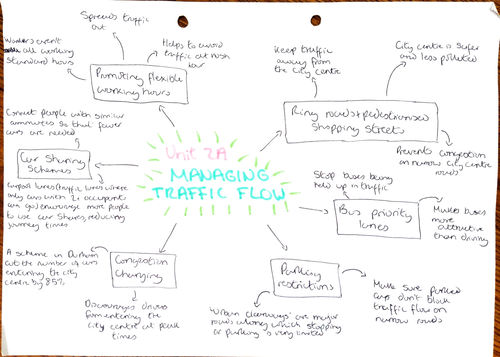 Spreads traffic
out
Workers aren't
all working
standard hours
Helps to avoid
traffic at rush
hour
Promoting flexible
working hours
Keep traffic
away from
the city centre
City centre is safer
and less polluted
Ring roads + pedestrianised
shopping streets
Prevents congestion
on narrow city centre
roads
Connect people with similar
commutes so that fewer
cars are needed
Car Sharing
Schemes
carpool lanes (traffic lanes where
only cars with 2+ occupants
can go) encourage more people
to use car shares, reducing
journey times
Unit 2A
MANAGING
TRAFFIC FLOW
Stop buses being
held up in traffic
Bus priority
lanes
Makes buses
more
attractive
than driving
A scheme in Durham
cut the number of cars
entering the city
centre by 85%
Congestion
Charging
Discourages drivers
from entering the
city centre at peak
times
Parking
restrictions
'Urban clearways' are major
roads along which stopping
or parking is very limited
Make sure parked
cars don't block
traffic flow on
narrow roads